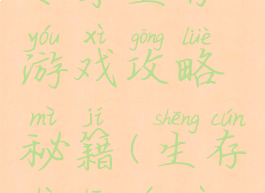 yóu xì gōng lüè
游戏攻略
mì jí shēng cún
秘籍(生存